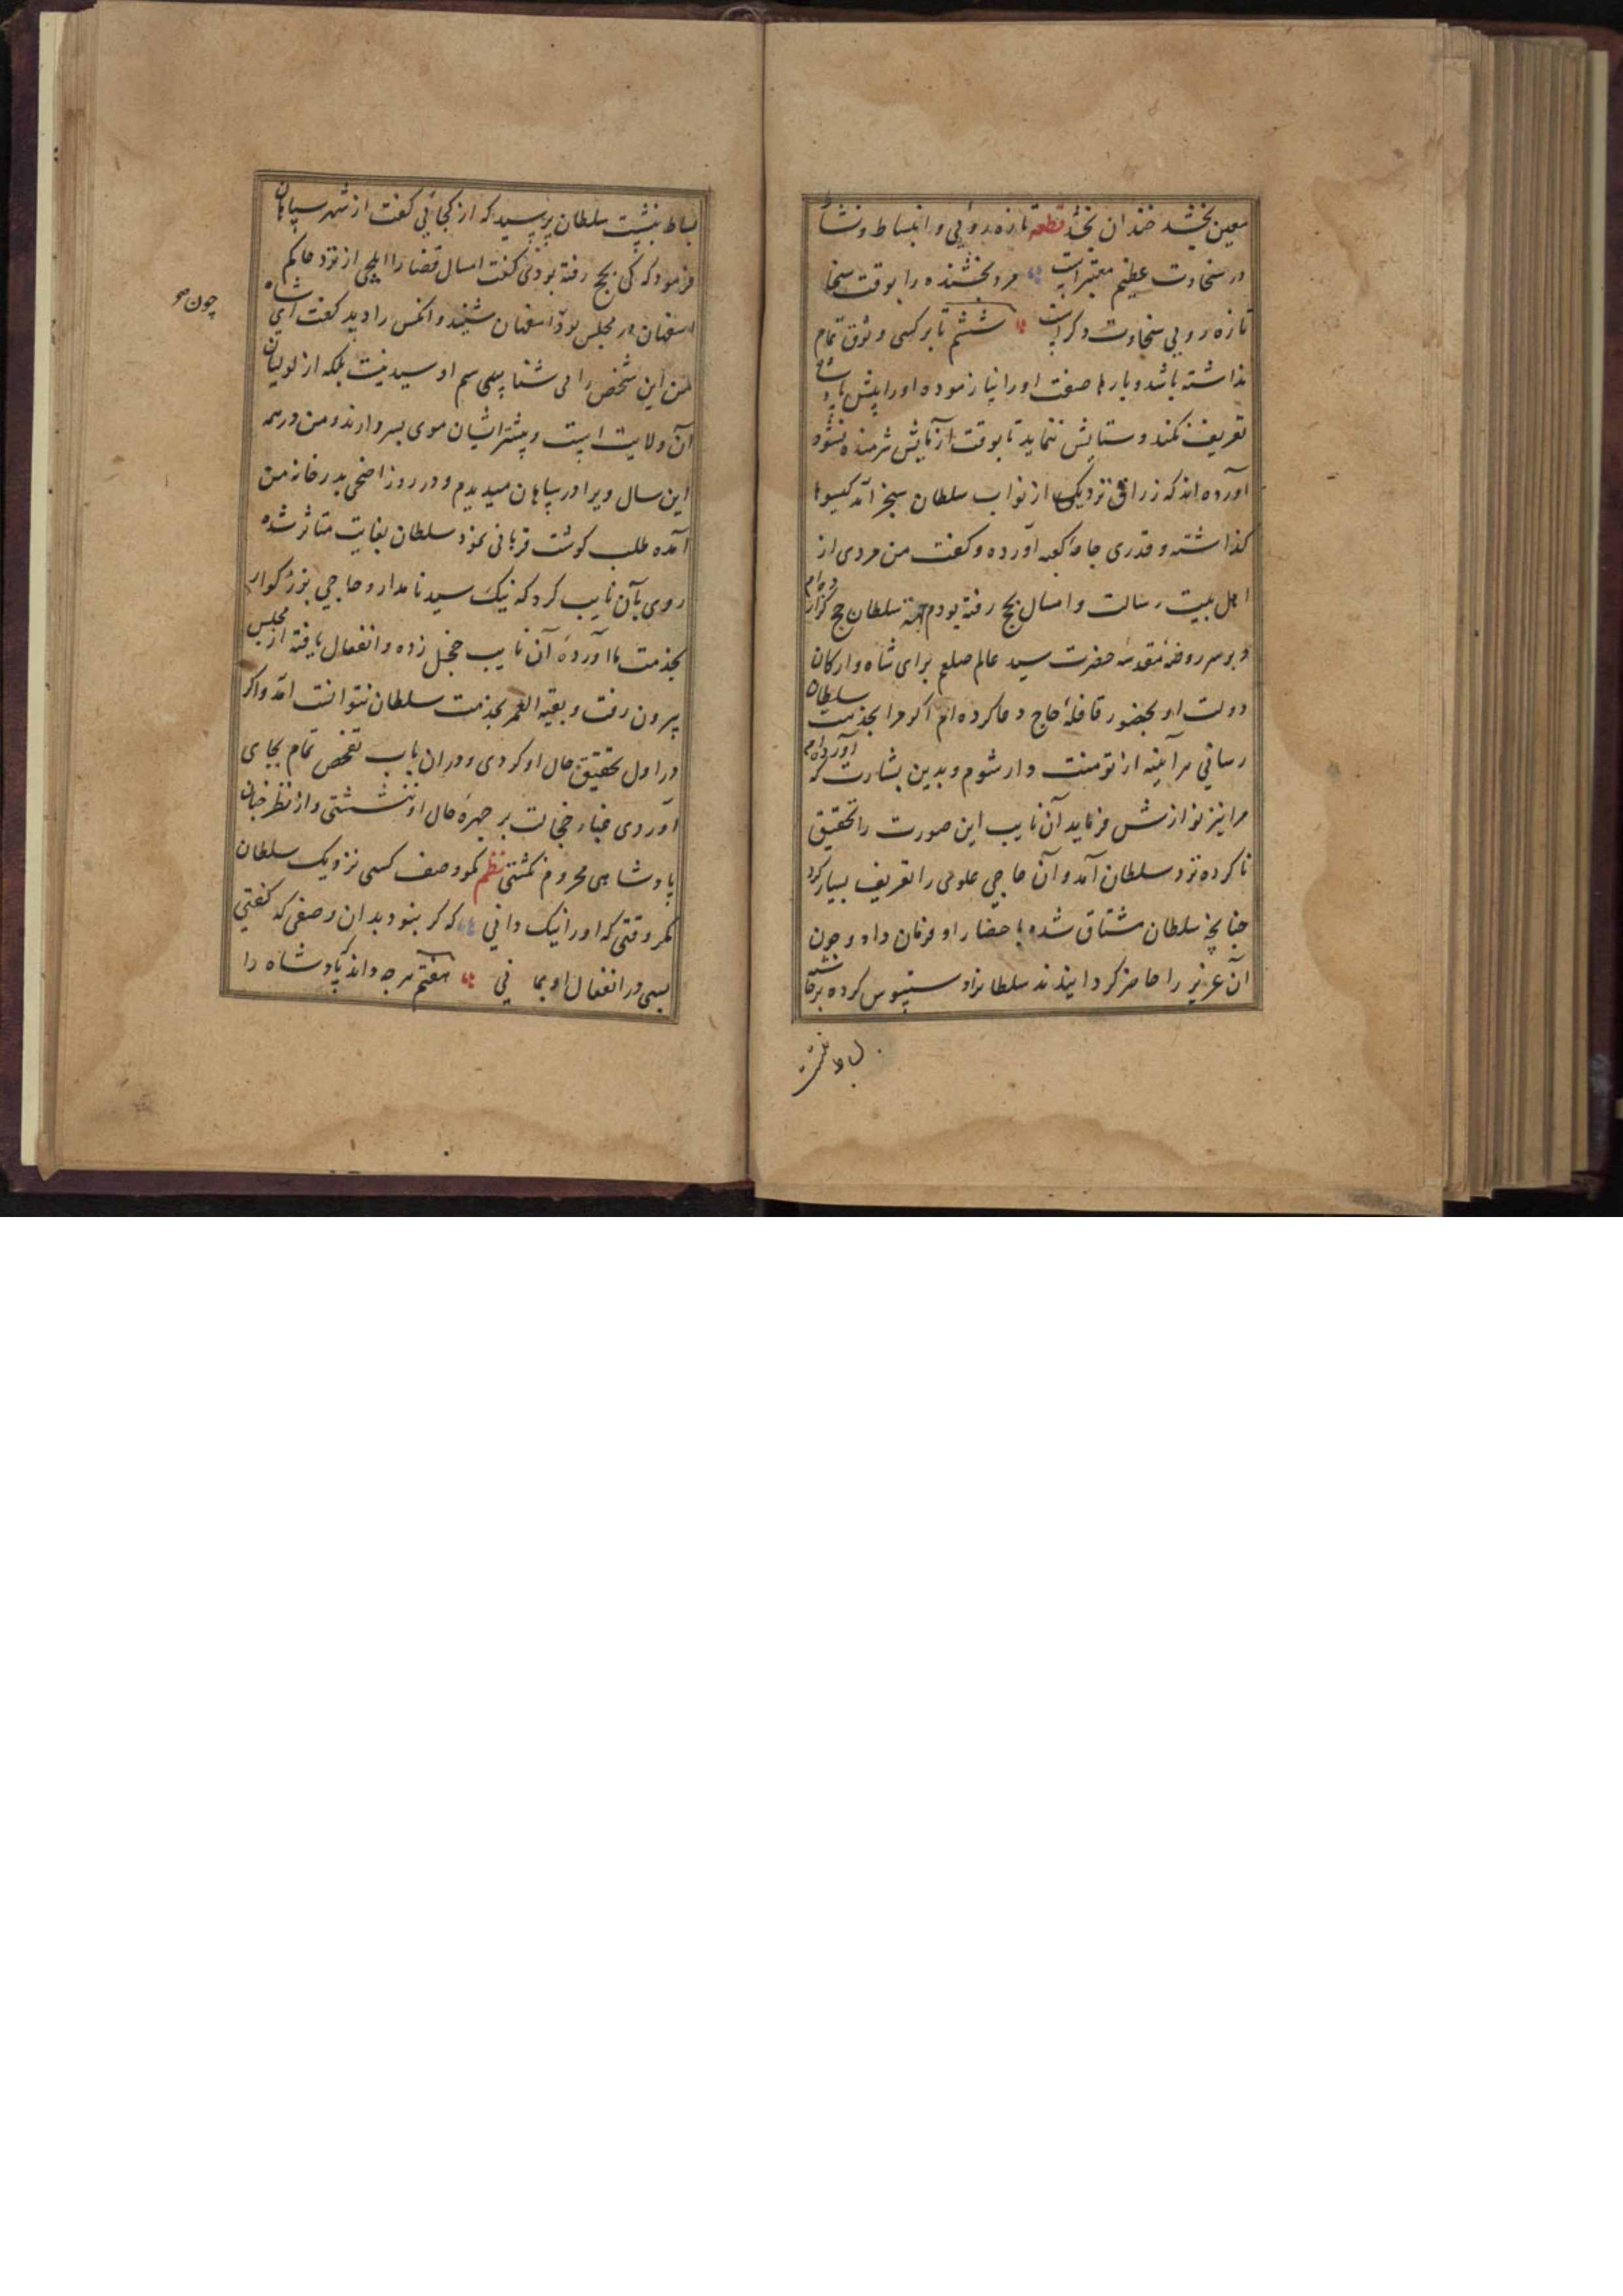 معین بخشد خندان بخشد قطعه تازه روئی و انبساط و نشاط
در سخاوت عظیم معتبراست مرد بخشنده را بوقت سخا
تازه رویی سخاوت دکراست ششم تا برکسی وثوق تمام
نداشته باشد و بارها صفت او را نیازموده او را پیش پادشاه
تعریف نکند و ستایش ننماید تا بوقت آزمایش شرمنده نشود
آورده اند که زراقی نزدیک از نواب سلطان سنجر آمد کیسوها
کذاشته و قدری جامۀ کعبه آورده و کفت من مردی از
اهل بیت رسالت و امسال بحج رفته بودم سلطان حج کزارده ام
و بر سر روضۀ مقدسۀ حضرت سید عالم صلعم برای شاه و ارکان
دولت او بحضور قافلۀ حاج دعا کرده ام اکر مرا بخدمت سلطان
رسانی هرآینه از تو منت دار شوم و بدین بشارت که آورده ام
مرا نیز نوازش فرماید آن نایب این صورت را تحقیق
ناکرده نزد سلطان آمد و آن حاجی علوی را تعریف بسیار کرد
چنانچه سلطان مشتاق شده باحضار او فرمان داد و چون
آن عزیز را حاضر کردانیدند سلطانرا دستبوس کرده برحاشیه
بساط بنشست
بساط بنشیت سلطان پرسید که از کجائی کفت از شهر سپاهان
فرمود که کی بحج رفته بودی کفت امسال قضا را ایلچی از نزد حاکم
اصفهان در مجلس بود اصفهان شنید و آنکس را دید کفت ای شاه
چون
من این شخص را می شناسم او سید نیست بلکه از لولیان
آن ولایت است و بیشتر ایشان موی بسر دارند و من در همه
این سال ویرا در سپاهان میدیدم و در روز اضحی بدر خانه من
آمده طلب کوشت قربانی نمود سلطان بغایت متاثر شده
روی بآن نایب کرد که نیک سید نامدار و حاجی بزرکوار
بخدمت ما آوردۀ آن نایب خجل زده و انفعال یافته از مجلس
بیرون رفت و بقیه العمر بخدمت سلطان نتوانست آمد و اکر
در اول تحقیق حال او کردی و دران باب تفحص تمام بجای
آوردی غبار خجالت بر چهرۀ حال او ننشستی و از نظر چنان
پادشاهی محروم نکشتی نظم مکو وصف کسی نزدیک سلطان
مکر وقتی که او را نیک دانی که کر بنود بدان وصفی که کفتی
بسی در انفعال او بمانی هفتم هرچه داند پادشاه را